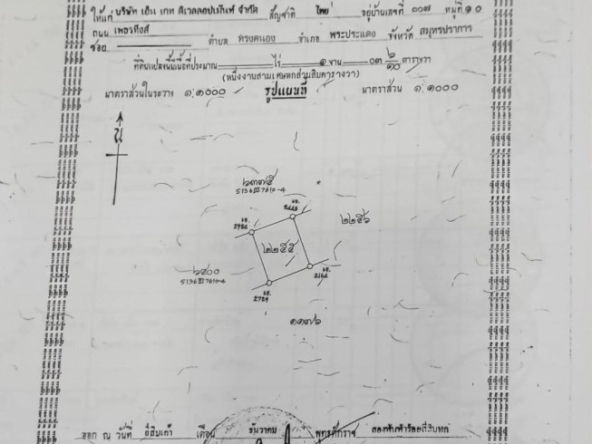 ให้แก่ บริษัท เอ็น เกท ดีเวลลอปเม้นท์ จำกัด สัญชาติ ไทย อยู่บ้านเลขที่ ๑๐๗ หมู่ที่ ๑๐
ถนน เพชรหึงส์
ซอย ตำบล ทรงคนอง อำเภอ พระประแดง จังหวัด สมุทรปราการ
ที่ดินแปลงนี้มีเนื้อที่ประมาณ ไร่ ๑ งาน ๐๓ ๒/๑๐ ตารางวา
(หนึ่งงานสามเศษสองส่วนสิบตารางวา)
มาตราส่วนในระวาง ๑:๑๐๐๐ รูปแผนที่ มาตราส่วน ๑:๑๐๐๐
น
5136 7610-4
๒๒๕๖
๒๒๕๕
5136 7610-4
ออก ณ วันที่ ยี่สิบเก้า เดือน ธันวาคม พุทธศักราช สองพันห้าร้อยสี่สิบหก